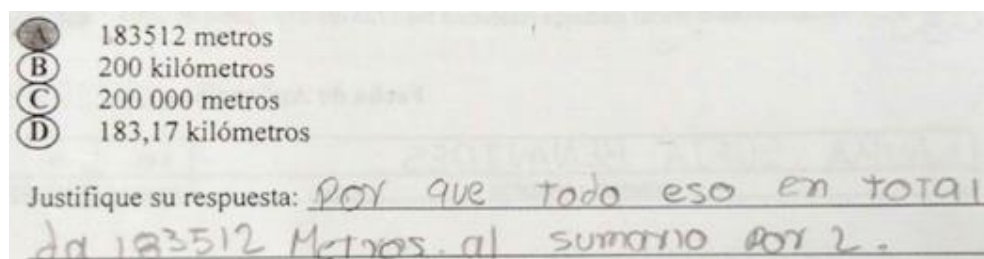 A 183512 metros
B 200 kilómetros
C 200 000 metros
D 183,17 kilómetros
Justifique su respuesta: Por que todo eso en total
da 183512 Metros. al sumarlo por 2.